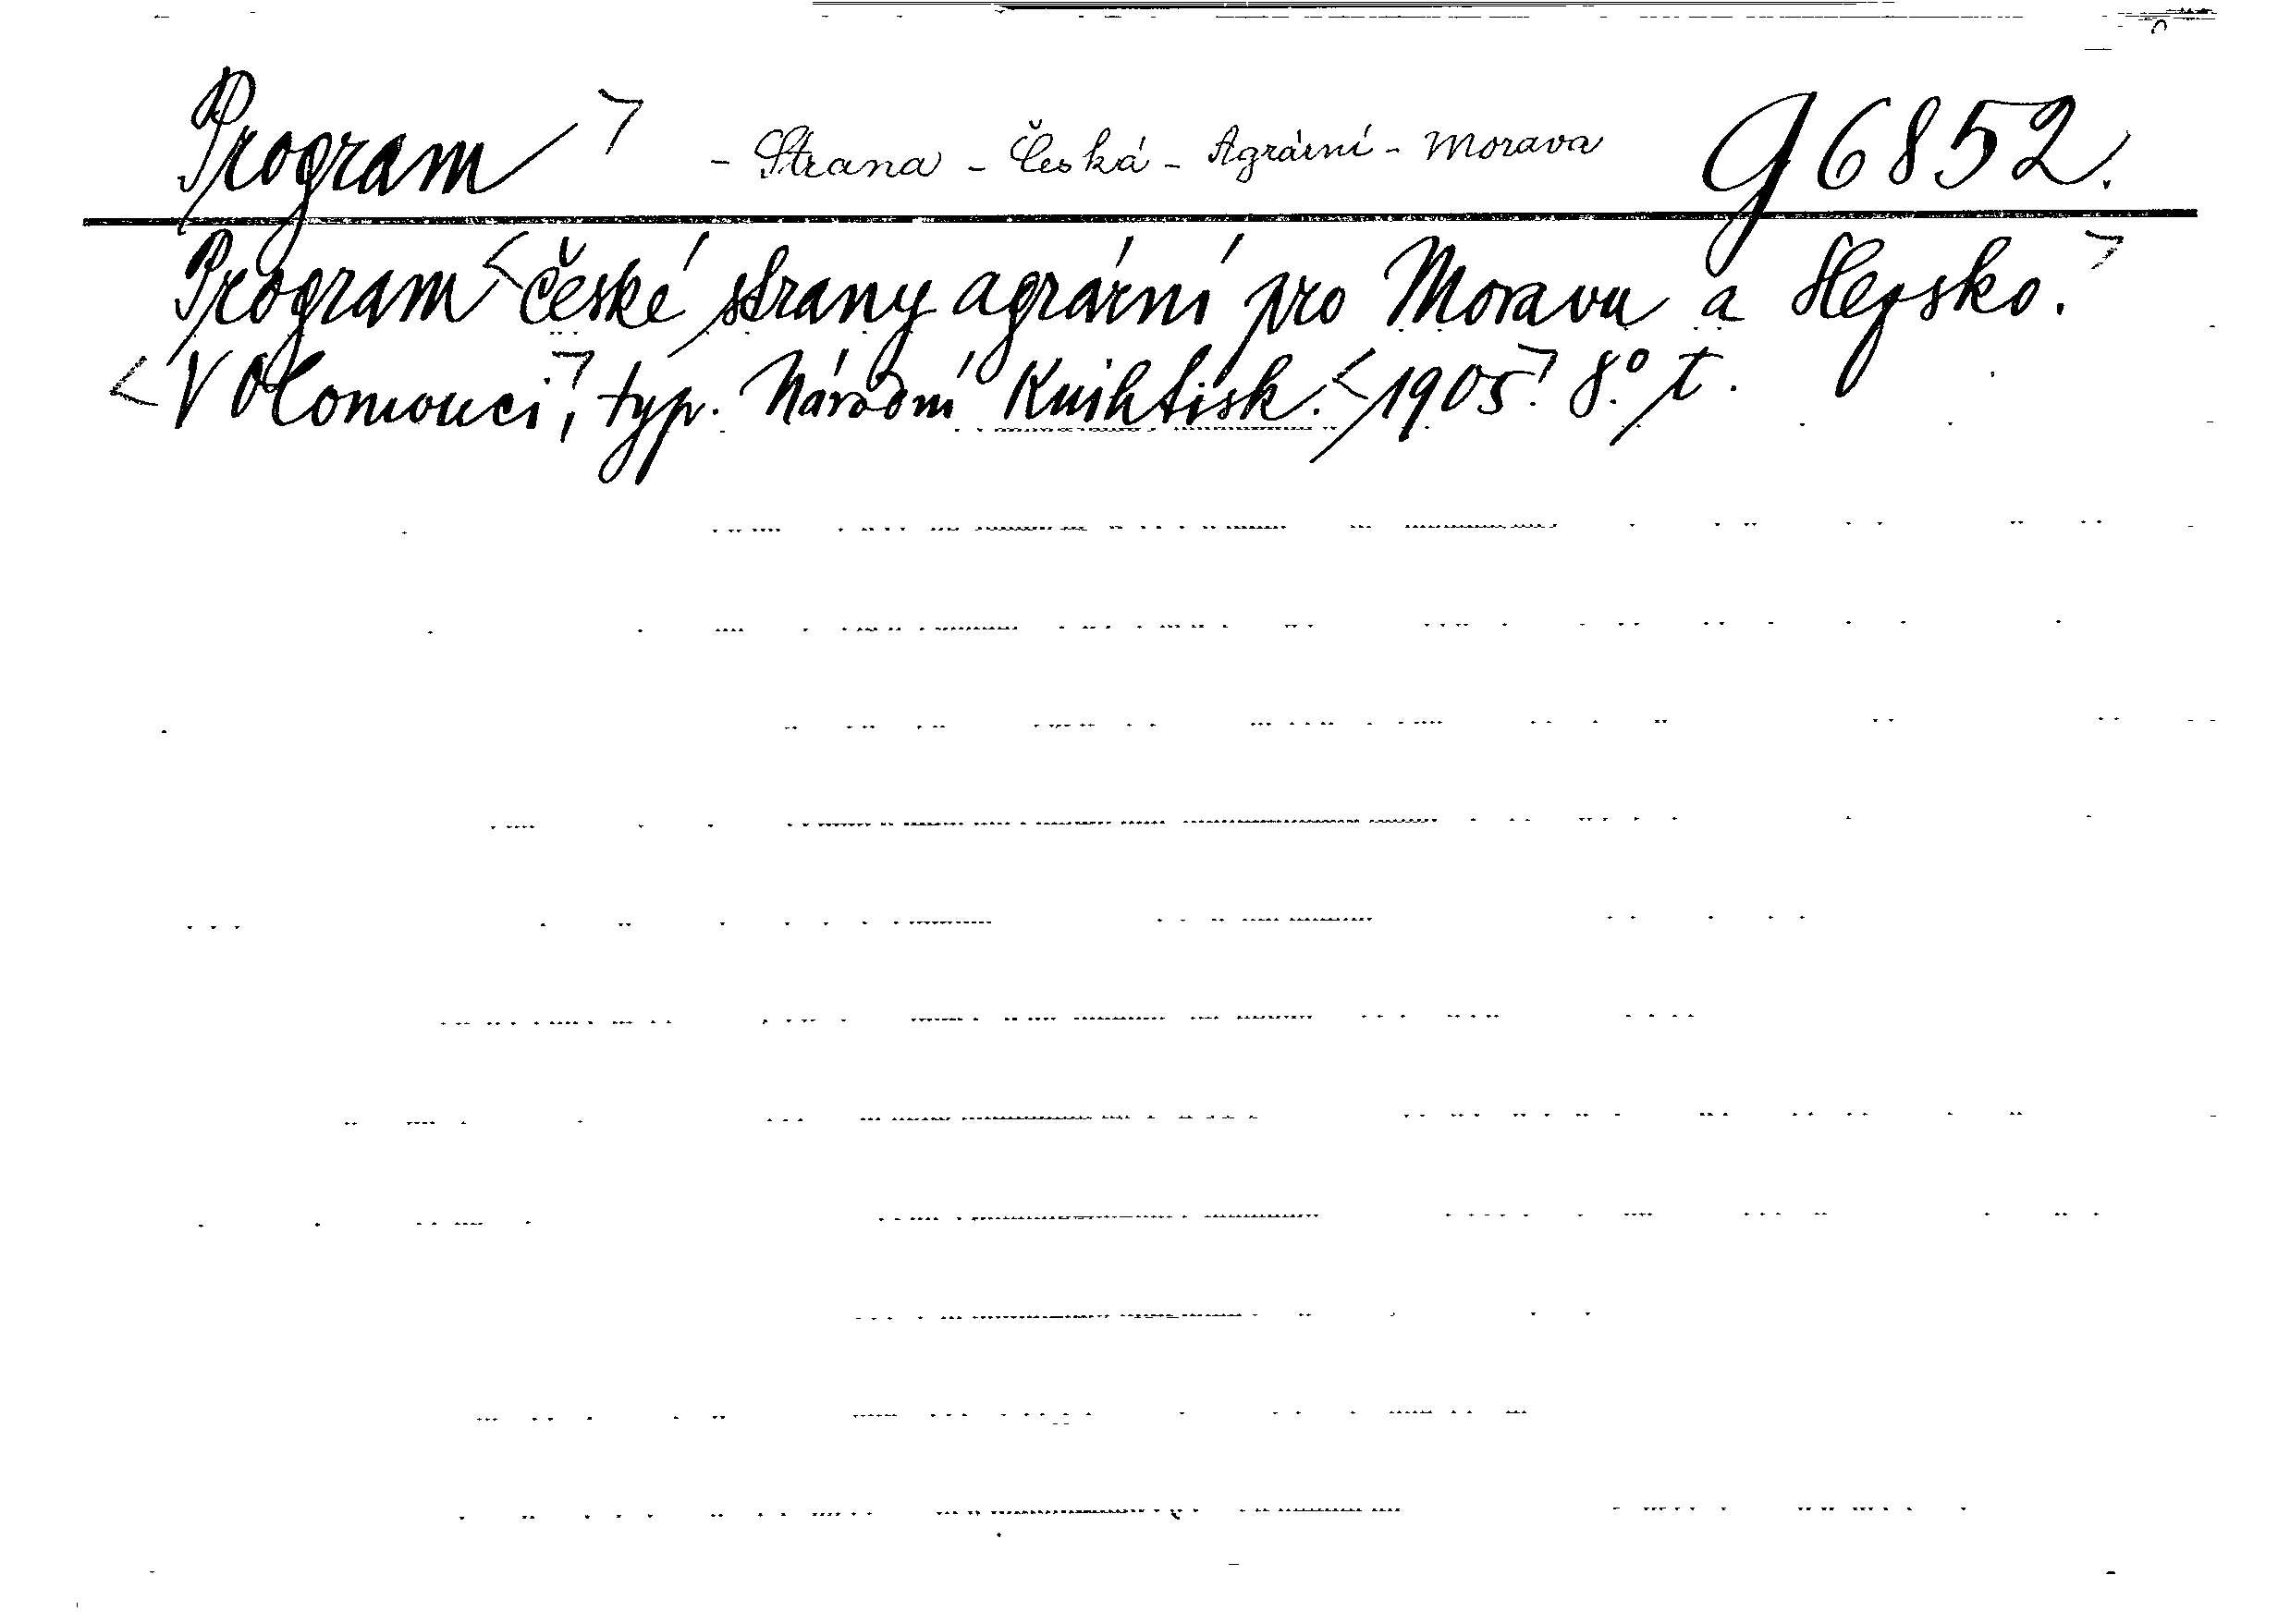 Program ㄱ - Strana - Česká - Agrární - Morava g 6852.
Program <české strany agrární pro Moravu a Slezsko.ㄱ
<V Olomouci,ㄱ typ. Národní Knihtisk. <1905.ㄱ 8.° t.